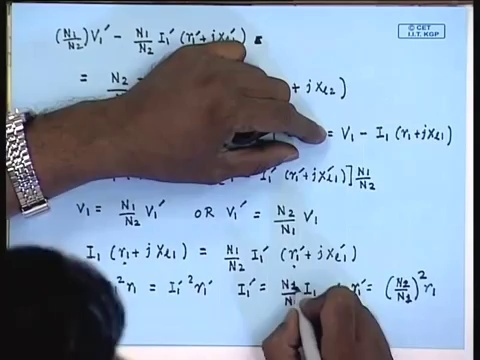 © CET
I.I.T. KGP
(N₁/N₂) V₁′ − N₁/N₂ I₁′ (r₁′ + jxℓ₁′)
= N₂ + jxℓ₂)
= V₁ − I₁ (r₁ + jxℓ₁)
I₁′ (r₁′ + jxℓ₁′)] N₁/N₂
V₁ = N₁/N₂ V₁′ OR V₁′ = N₂/N₁ V₁
I₁ (r₁ + jxℓ₁) = N₁/N₂ I₁′ (r₁′ + jxℓ₁′)
²r₁ = I₁′² r₁′ I₁′ = N₁/N I₁ r₁′ = (N₂/N₁)² r₁